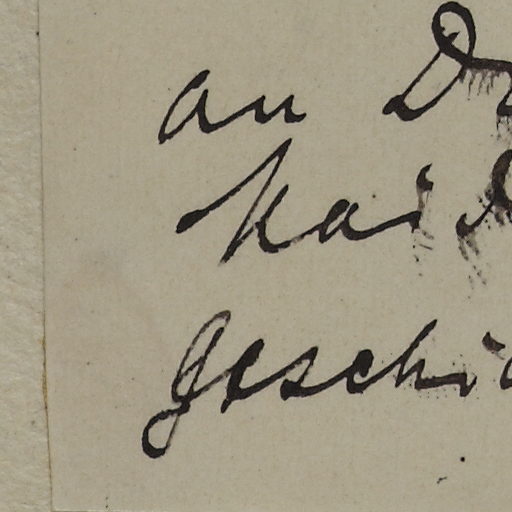 an D
Kais
geschi